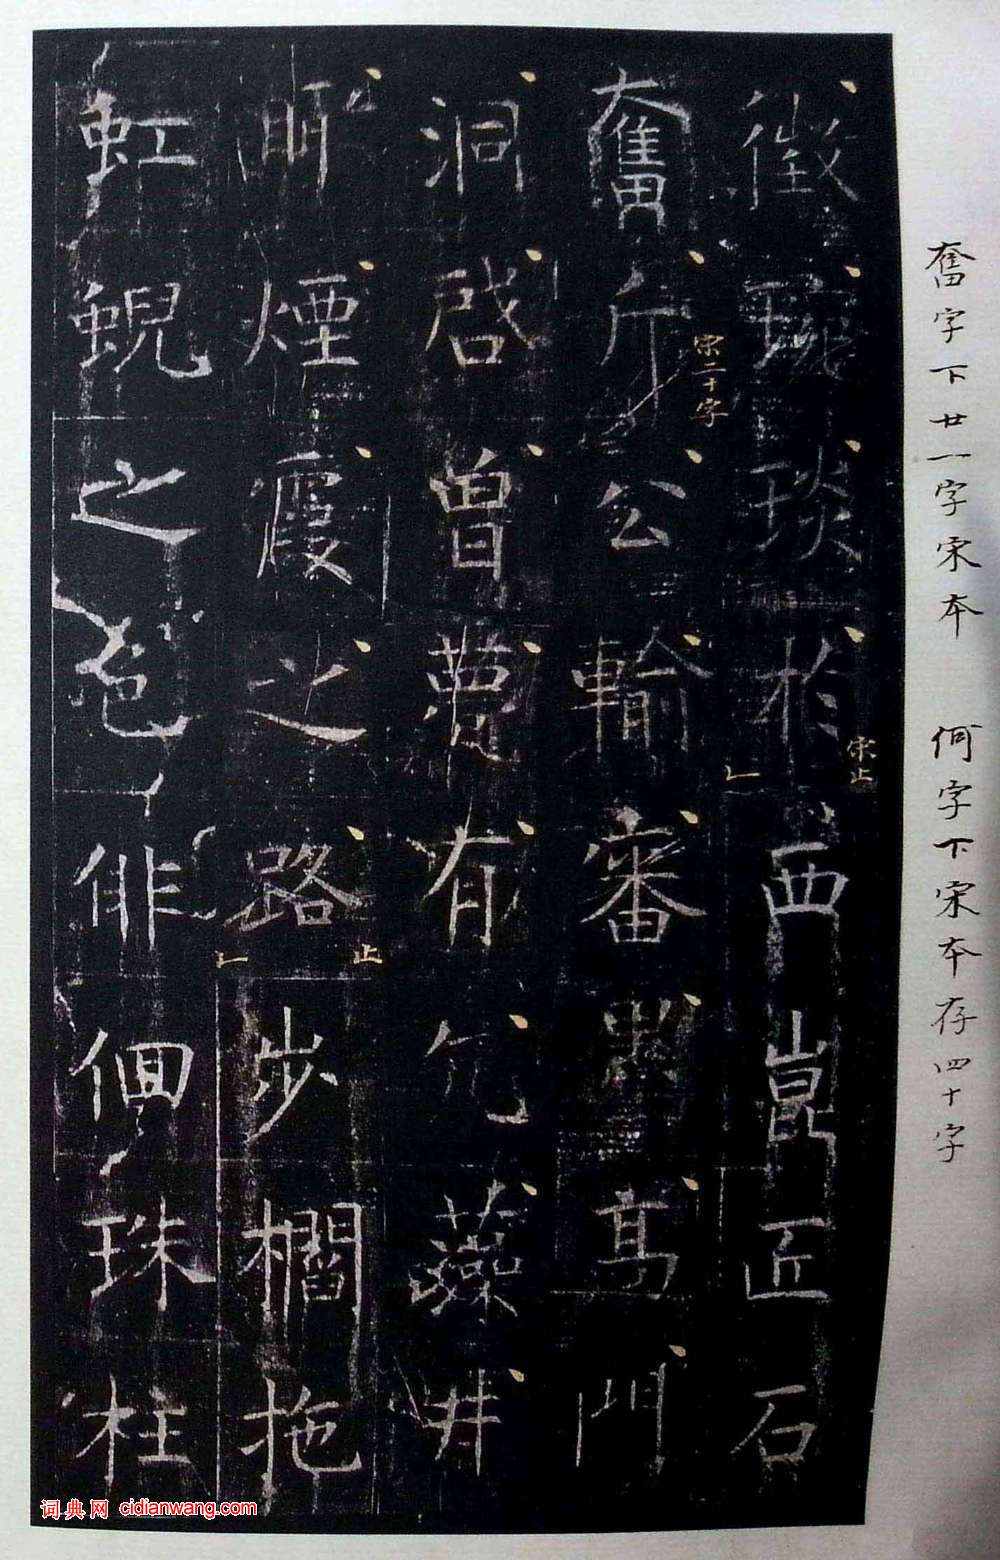 奮字下廿一字宋本　何字下宋本存四十字
徵琬琰於西崑匠石
宋止
奮斤公輸審墨高門
宋二十字
洞啓曾甍有藻井
眄煙霞之路步櫩拖
止
虹蜺之色俳佪珠柱
词典网 cidianwang.com